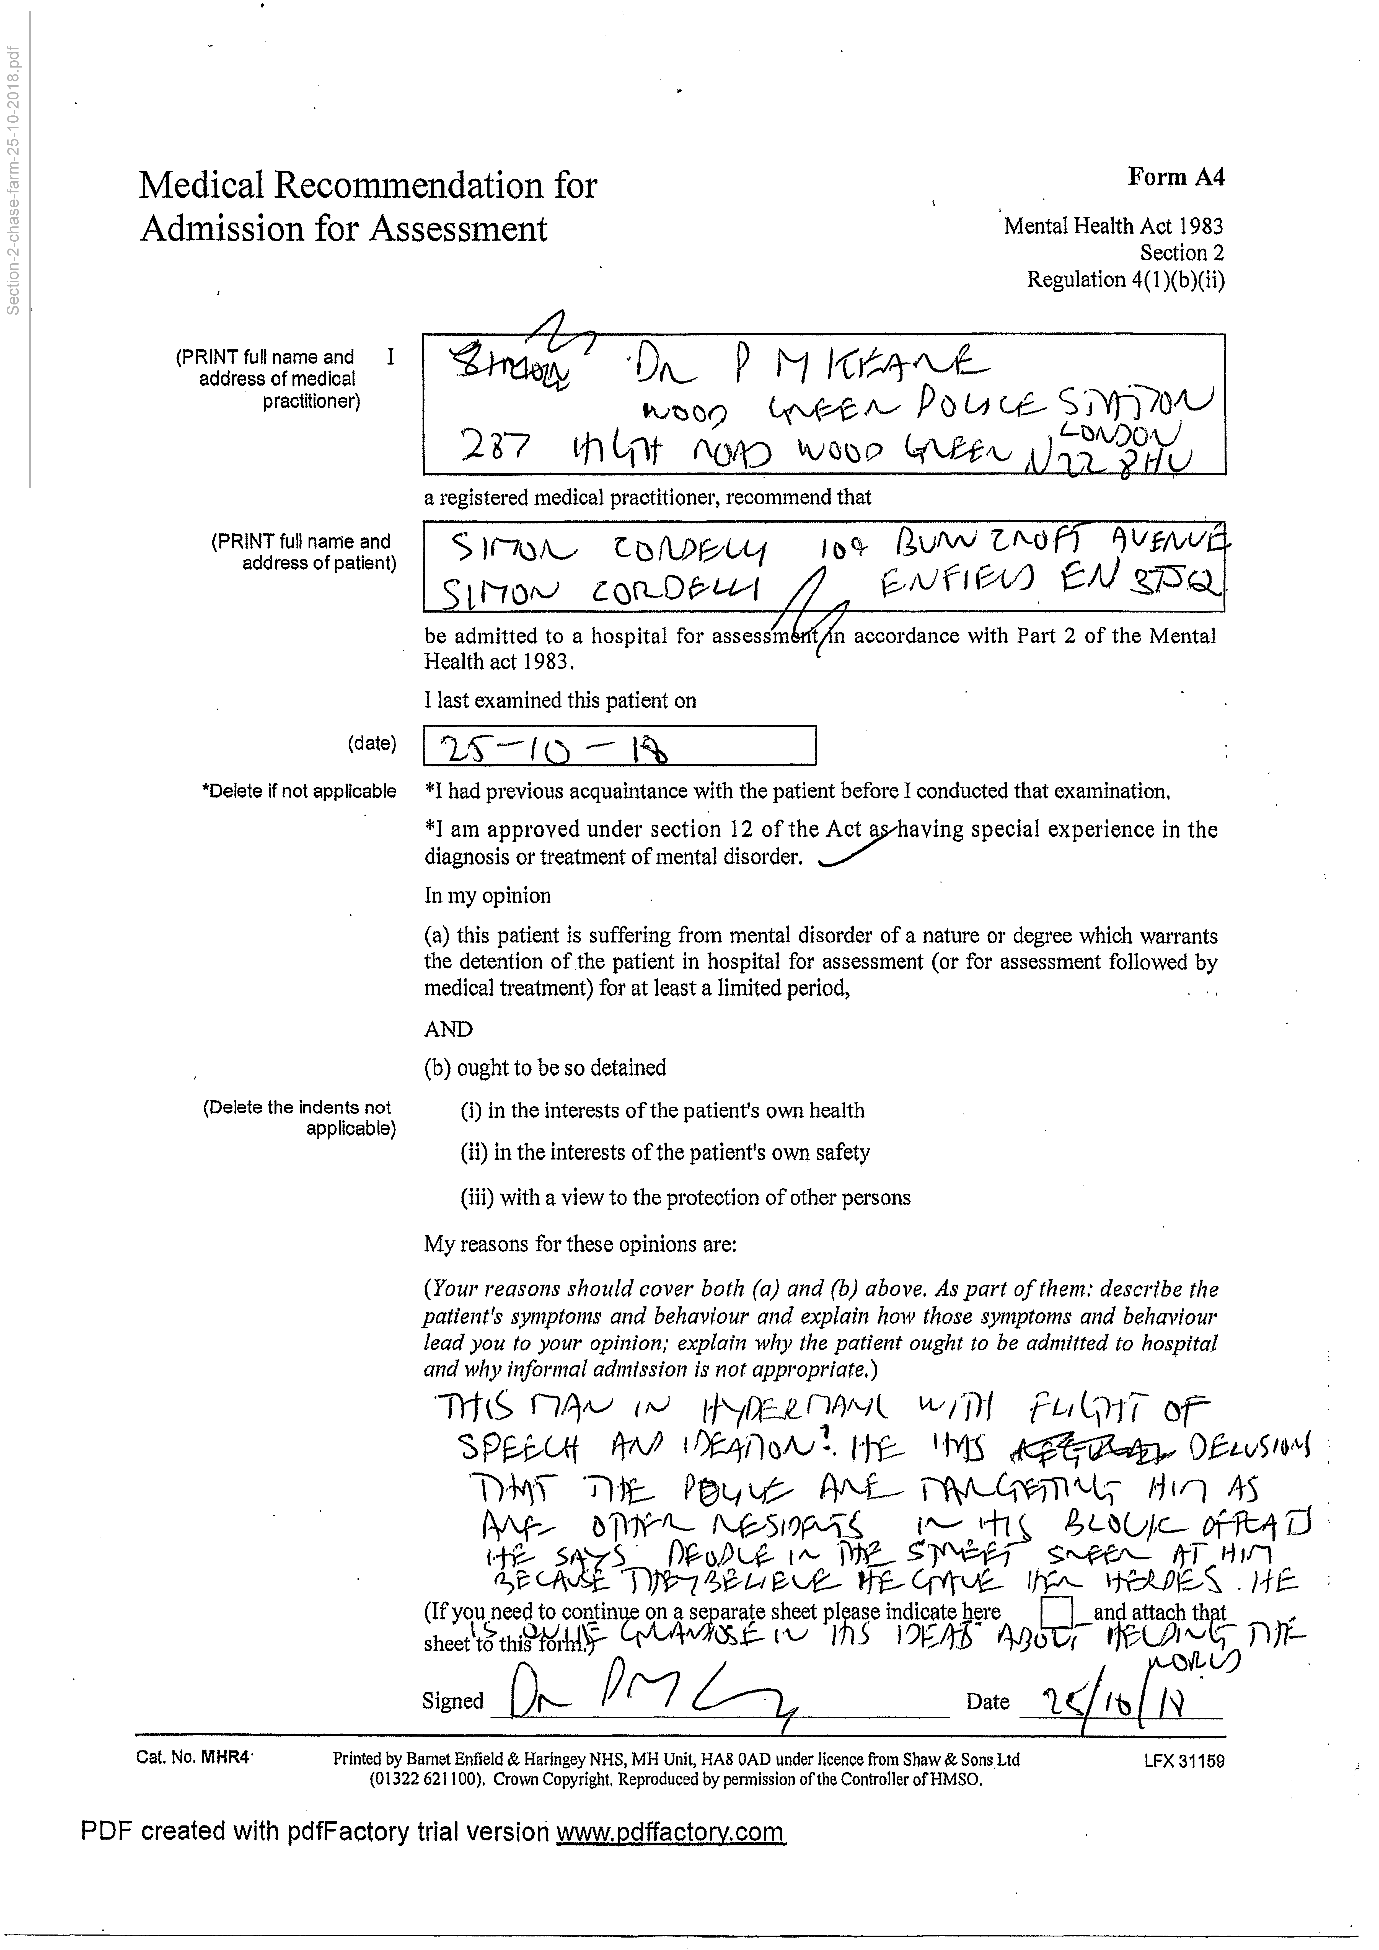 Section-2-chase-farm-25-10-2018.pdf
Medical Recommendation for
Admission for Assessment
Form A4
Mental Health Act 1983
Section 2
Regulation 4(1)(b)(ii)
(PRINT full name and
address of medical
practitioner)
I
DR P M KEANE
WOOD GREEN POLICE STATION
287 HIGH ROAD WOOD GREEN LONDON
N22 8HU
a registered medical practitioner, recommend that
(PRINT full name and
address of patient)
SIMON CORDELL 109 BURNCROFT AVENUE
SIMON CORDELL ENFIELD EN3 7JQ
be admitted to a hospital for assessment in accordance with Part 2 of the Mental
Health act 1983.
I last examined this patient on
(date)
25-10-18
*Delete if not applicable
*I had previous acquaintance with the patient before I conducted that examination.
*I am approved under section 12 of the Act as having special experience in the
diagnosis or treatment of mental disorder.
In my opinion
(a) this patient is suffering from mental disorder of a nature or degree which warrants
the detention of the patient in hospital for assessment (or for assessment followed by
medical treatment) for at least a limited period,
AND
(b) ought to be so detained
(Delete the indents not
applicable)
(i) in the interests of the patient's own health
(ii) in the interests of the patient's own safety
(iii) with a view to the protection of other persons
My reasons for these opinions are:
(Your reasons should cover both (a) and (b) above. As part of them: describe the
patient's symptoms and behaviour and explain how those symptoms and behaviour
lead you to your opinion; explain why the patient ought to be admitted to hospital
and why informal admission is not appropriate.)
THIS MAN IN HYPERMANIC WITH FLIGHT OF
SPEECH AND IDEATION. HE HAS DELUSIONS
THAT THE POLICE ARE TARGETING HIM AS
ARE OTHER RESIDENTS IN HIS BLOCK OF FLATS
HE SAYS PEOPLE IN THE STREET SNEER AT HIM
BECAUSE THEY BELIEVE HE GAVE HER HERPES. HE
(If you need to continue on a separate sheet please indicate here and attach that
sheet to this form)
IS GRANDIOSE IN HIS IDEAS ABOUT HELPING THE
WORLD
Signed Dr PM
Date 25/10/18
Cat. No. MHR4
Printed by Barnet Enfield & Haringey NHS, MH Unit, HA8 0AD under licence from Shaw & Sons Ltd
(01322 621100). Crown Copyright. Reproduced by permission of the Controller of HMSO.
LFX 31159
PDF created with pdfFactory trial version www.pdffactory.com